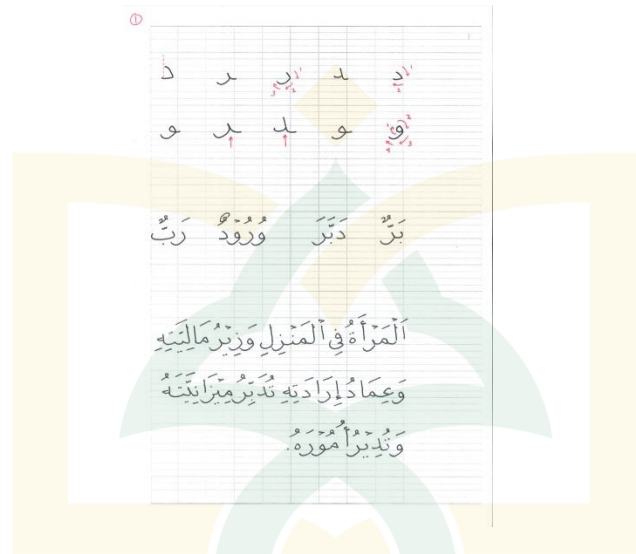 ①
د ـد ر ـر د
و ـو ـد ـر و
بَرٌّ دَبَّرَ وُرُوْدٌ رَبٌّ
اَلْمَرْأَةُ فِي الْمَنْزِلِ وَزِيْرُ مَالِيَّتِهِ
وَعِمَادُ إِرَادَتِهِ تُدَبِّرُ مِيْزَانِيَّتَهُ
وَتُدِيْرُ أُمُوْرَهُ.